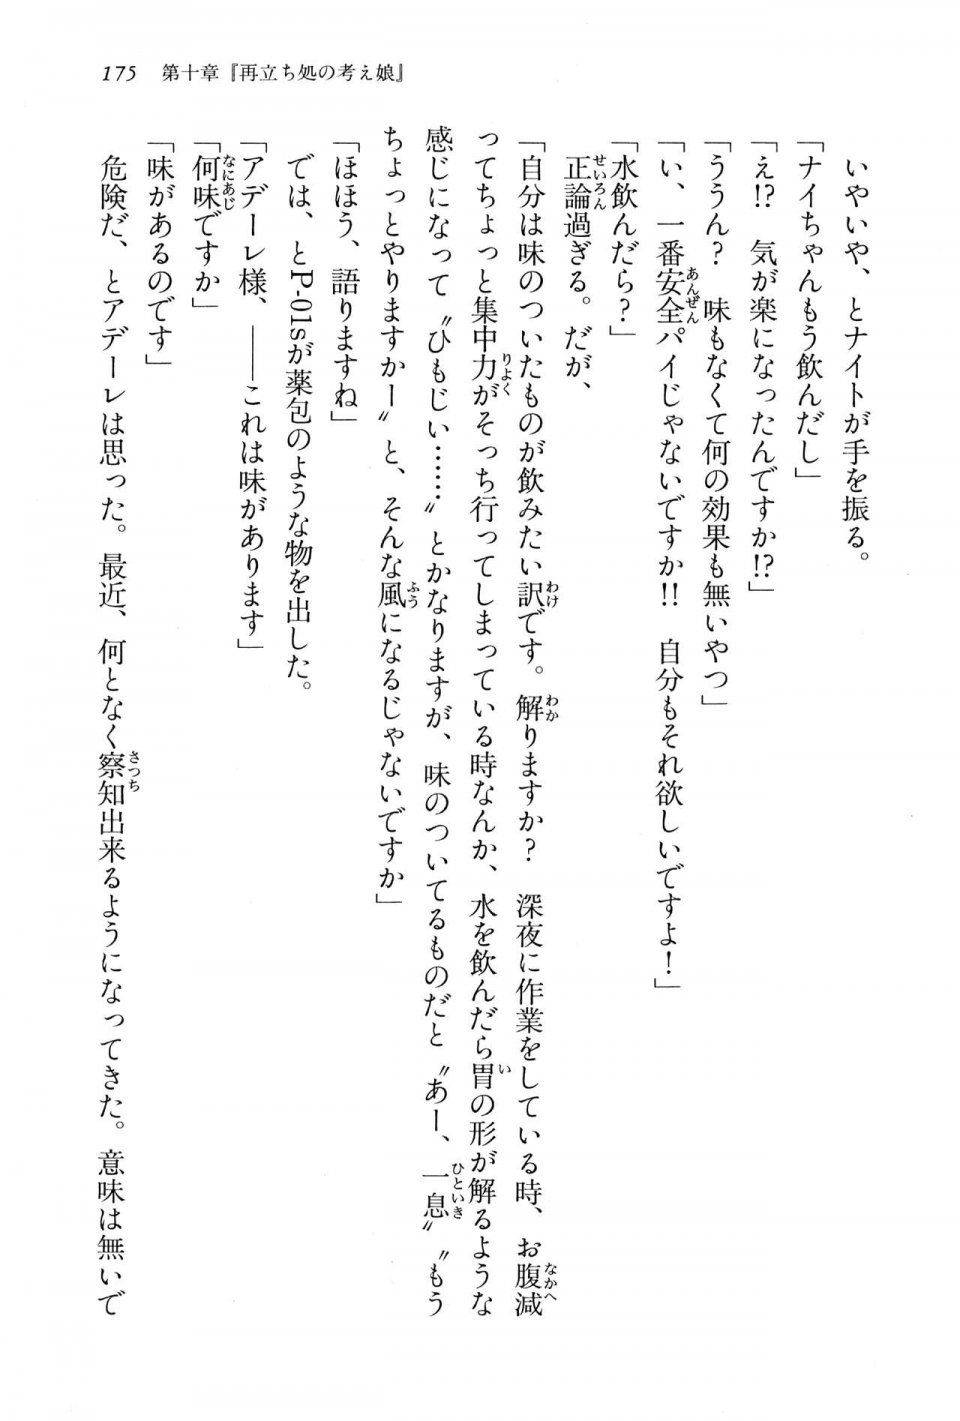 175　第十章『再立ち処の考え娘』
　いやいや、とナイトが手を振る。
「ナイちゃんもう飲んだし」
「え!?　気が楽になったんですか!?」
「ううん？　味もなくて何の効果も無いやつ」
「い、一番安全パイじゃないですか!!　自分もそれ欲しいですよ！」
「水飲んだら？」
　正論過ぎる。だが、
「自分は味のついたものが飲みたい訳です。解りますか？　深夜に作業をしている時、お腹減
ってちょっと集中力がそっち行ってしまっている時なんか、水を飲んだら胃の形が解るような
感じになって〝ひもじい……〟とかなりますが、味のついてるものだと〝あー、一息〟〝もう
ちょっとやりますかー〟と、そんな風になるじゃないですか」
「ほほう、語りますね」
　では、とP-01sが薬包のような物を出した。
「アデーレ様、――これは味があります」
「何味ですか」
「味があるのです」
　危険だ、とアデーレは思った。最近、何となく察知出来るようになってきた。意味は無いで